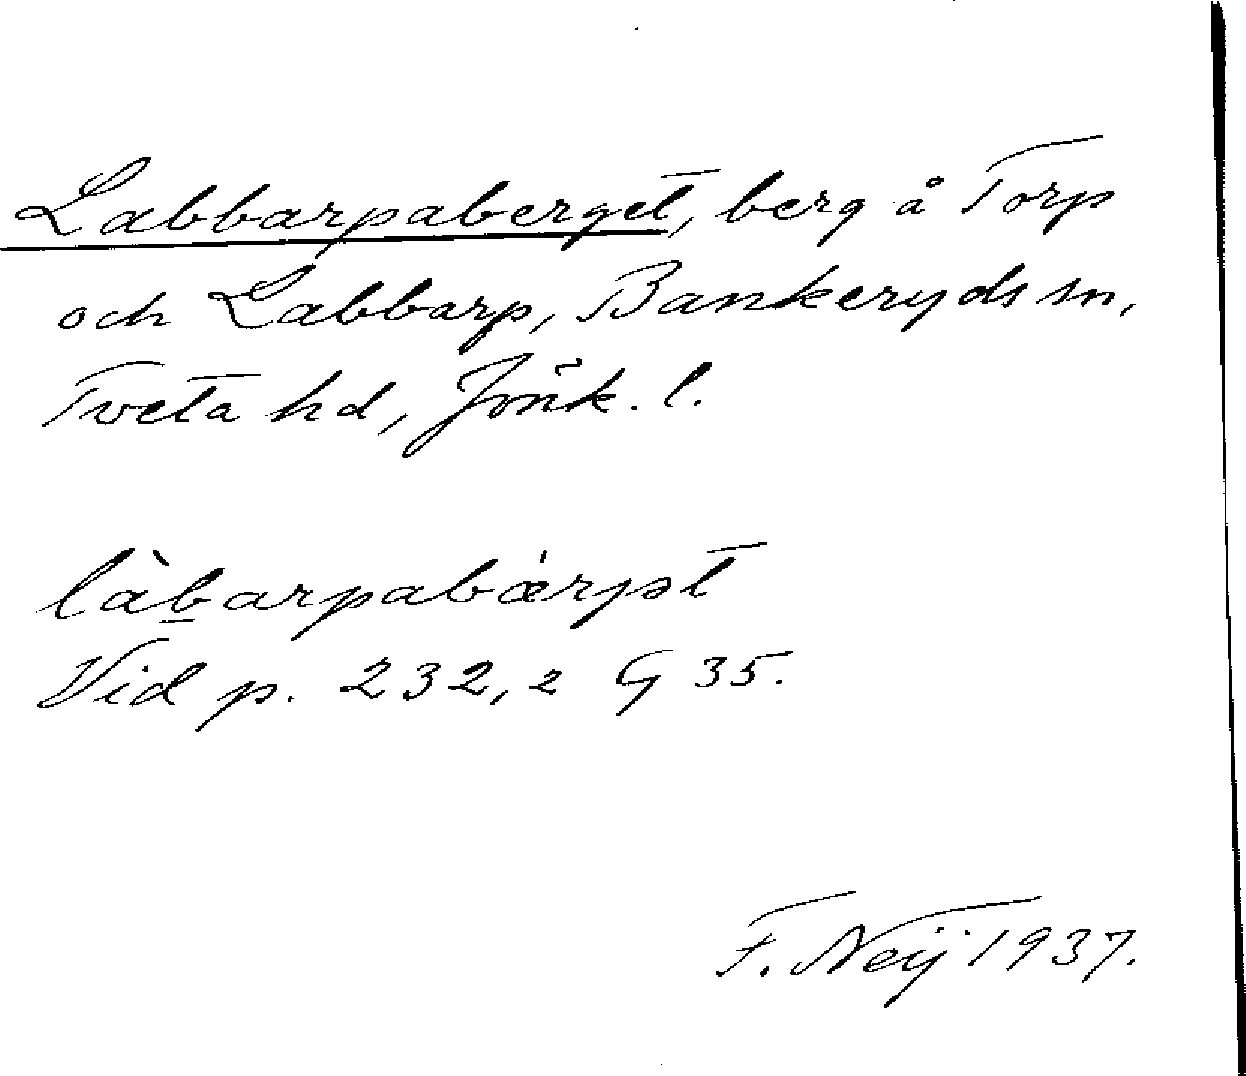 Labbarpaberget, berg å Torp
och Labbarp, Bankeryds sn,
Tveta hd, Jönk. l.
làb̲arpabǽrjət
Vid p. 232,2 G 35.
F. Neij 1937.